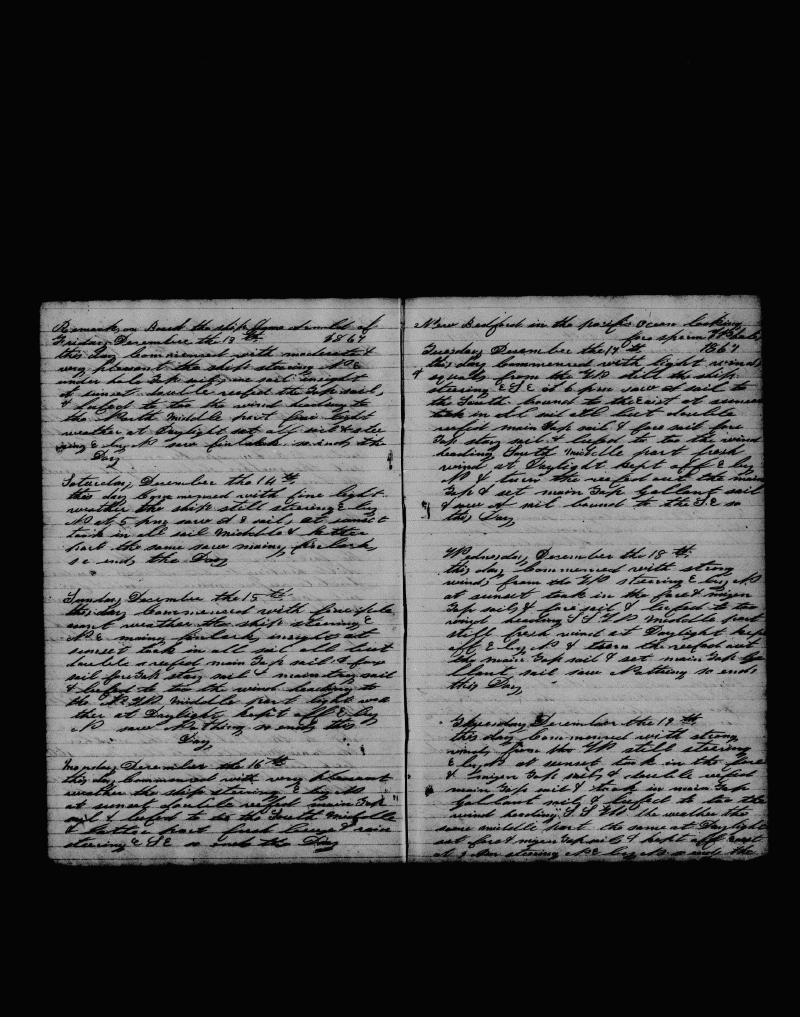 Remarks on Board the ship James Arnold of
Friday December the 13th 1867
this Day Commenced with moderate &
very pleasant the ship steering N E
under hole Top sails one sail insight
at sunset double reefed the Top sails
& luffed to too the wind heading to
the North Middle part fine light
weather at Daylight set all sail & stee
ring E by N saw finback so ends the
Day
Saturday December the 14th
this day Commenced with fine light
weather the ship still steering E by
N at 5 pm saw a sail at sunset
took in all sail Middle & latter
part the same saw many finback
so ends the Day
Sunday December the 15th
this day Commenced with fine plea
sant weather the ship steering E
N E many finback insight at
sunset took in all sail all but
double reefed main Top sail & fore
sail fore Top stay sail & main try sail
& luffed to too the wind heading to
the N W Middle part light wea
ther at Daylight kept off E by
N saw Nothing so ends this
Day
Monday December the 16th
this day Commenced with very pleasant
weather the ship steering E by N
at sunset double reefed main Top
sail & luffed to the South Middle
& latter part fresh breeze & rain
steering E S E so ends the Day
New Bedford in the pacific Ocean looking
for sperm Whales
Tuesday December the 17th 1867
this day Commenced with light winds
& squals from the W still the ship
steering E S E at 6 pm saw a sail to
the South bound to the East at sunset
took in all sail all but double
reefed main Top sail & fore sail fore
Top stay sail & luffed to too the wind
heading South Middle part fresh
wind at Daylight kept off E by
N & turn the reefed out the main
Top & set main Top Gallant sail
& saw A sail bound to the S E so
this Day
Wednesday December the 18th
this day Commenced with strong
winds from the W steering E by N
at sunset took in the fore & mizen
Top sails & fore sail & luffed to too
wind heading S S W Middle part
still fresh wind at Daylight kep
off E by N & turn the reefed out
the main Top sail & set main Top Ga
llant sail saw Nothing so ends
this Day
Thursday December the 19th
this day Commenced with strong
winds from the W still steering
E by N at sunset took in the fore
& mizen Top sails & double reefed
main Top sail & took in main Top
Gallant sail & luffed to too the
wind heading S S W the weather the
same middle part the same at Daylight
set fore & mizen Top sails & kept off East
at steering N E by N so ends the